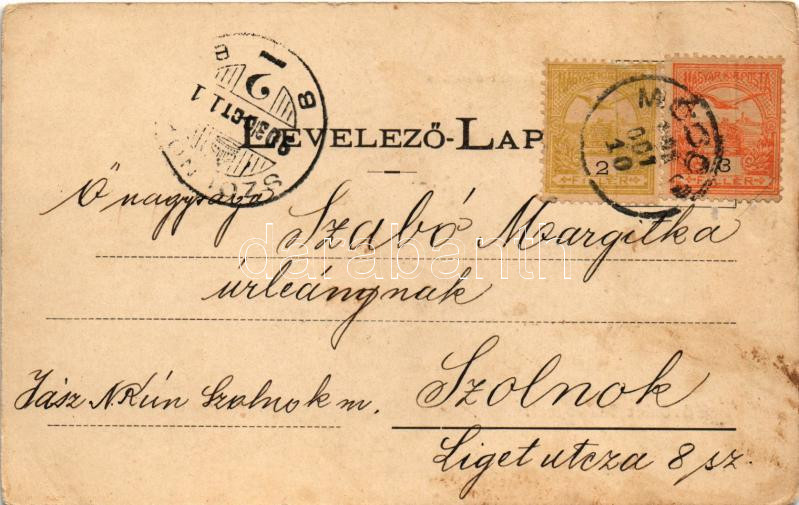 LEVELEZŐ-LAP
MAGYAR KIR. POSTA
2
FILLÉR
MAGYAR KIR. POSTA
3
FILLÉR
OCT
10
SZOLNOK
903 OCT 11
2 I
B
Őnagysága
Szabó Margitka
úrleánynak
Jász N. Kún Szolnok m.
Szolnok
Liget utcza 8 sz.
darabanth